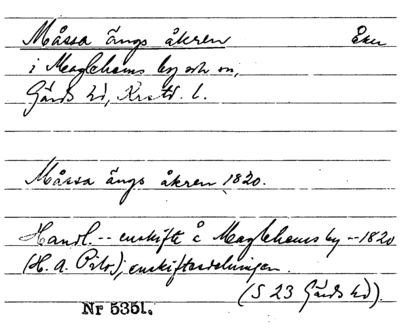 Måssa ängs åkren Åker
i Maglehems by och sn,
Gärds hd, Krstd. l.
Måssa ängs åkren 1820.
Handl. -- enskifte å Maglehems by -- 1820
(H. a. Prtr.); enskiftesdelningen.
(S 23 Gärds hd).
Nr 5351.